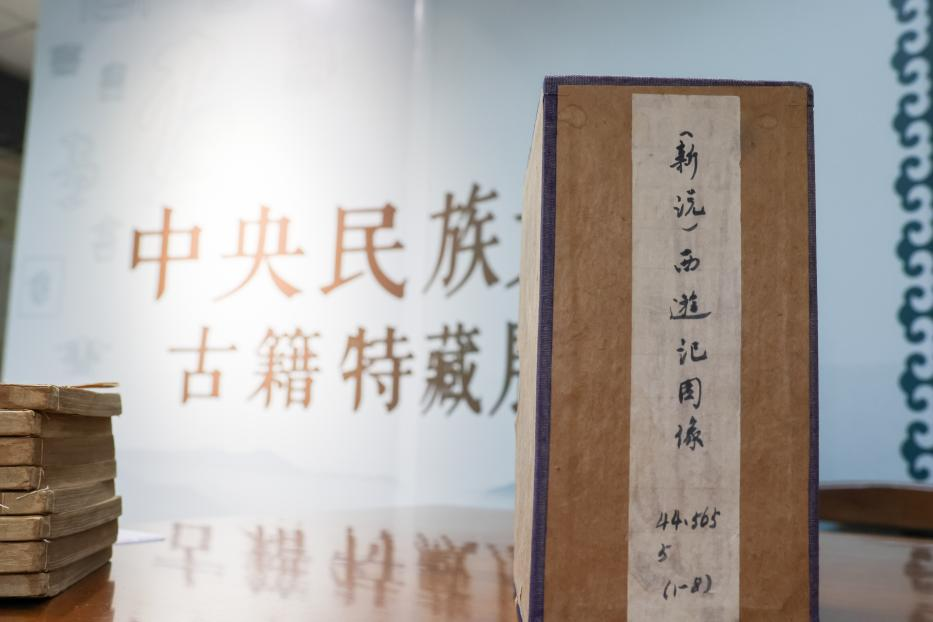 中央民族
古籍特藏
（新说）西遊记图像
44.565
5
(1-8)